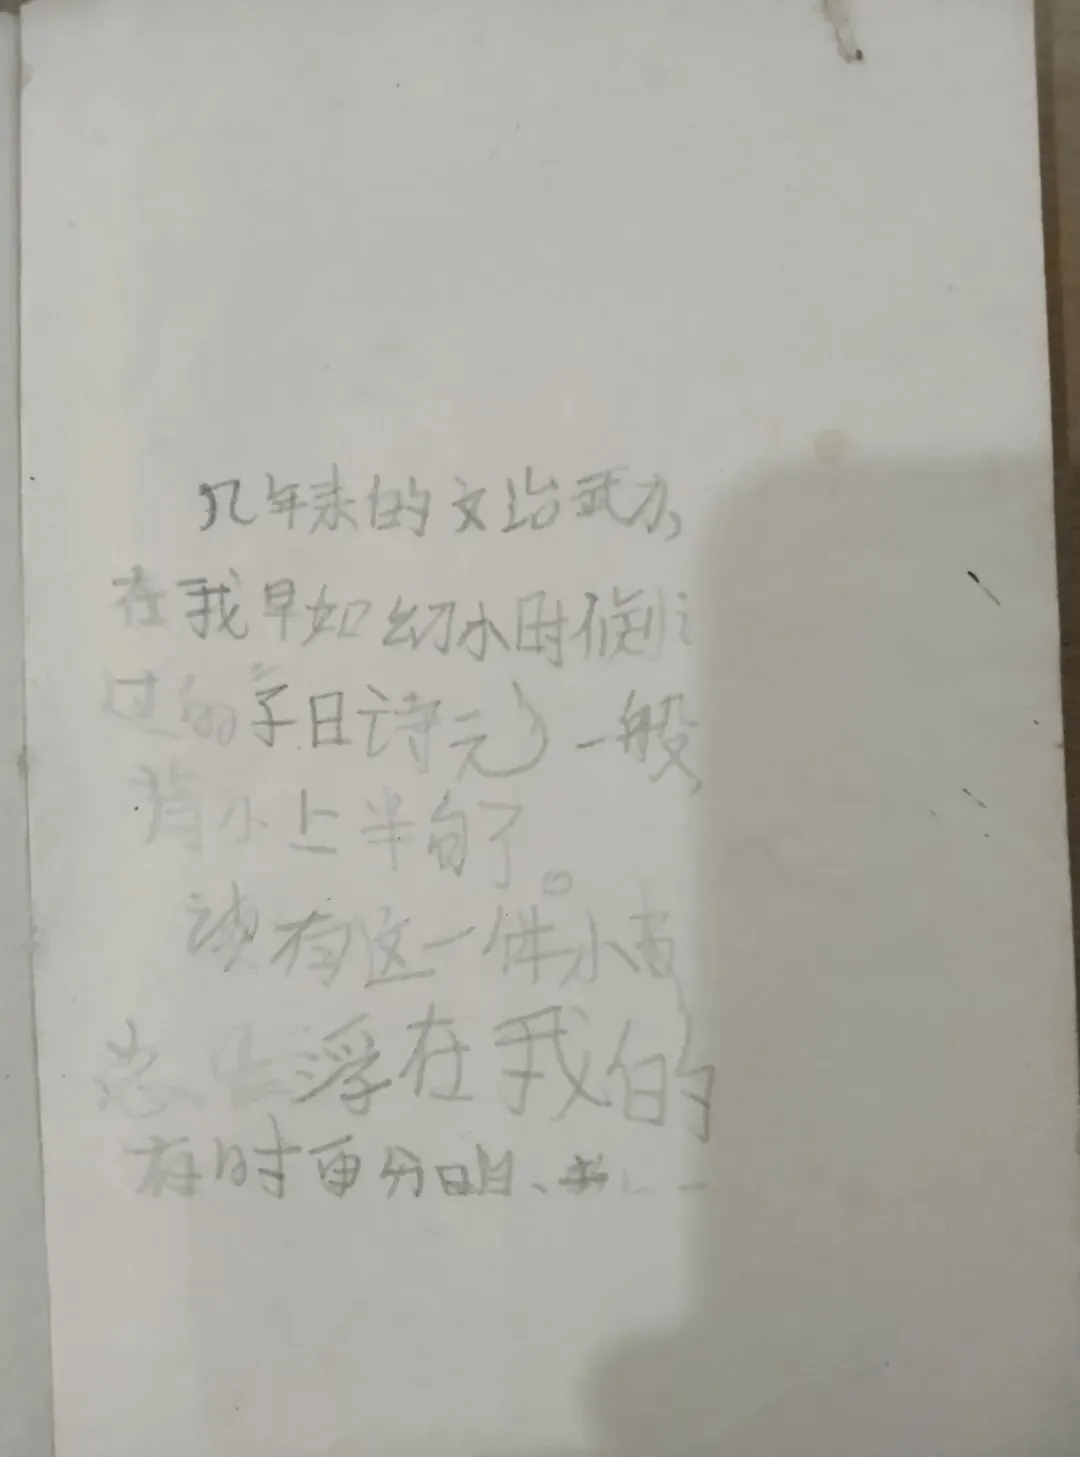 几年来的文治武力,
在我早如幼小时候
过的“子曰诗云”一般,
背不上半句了。
有这一件小
浮在我的
有时更分明、